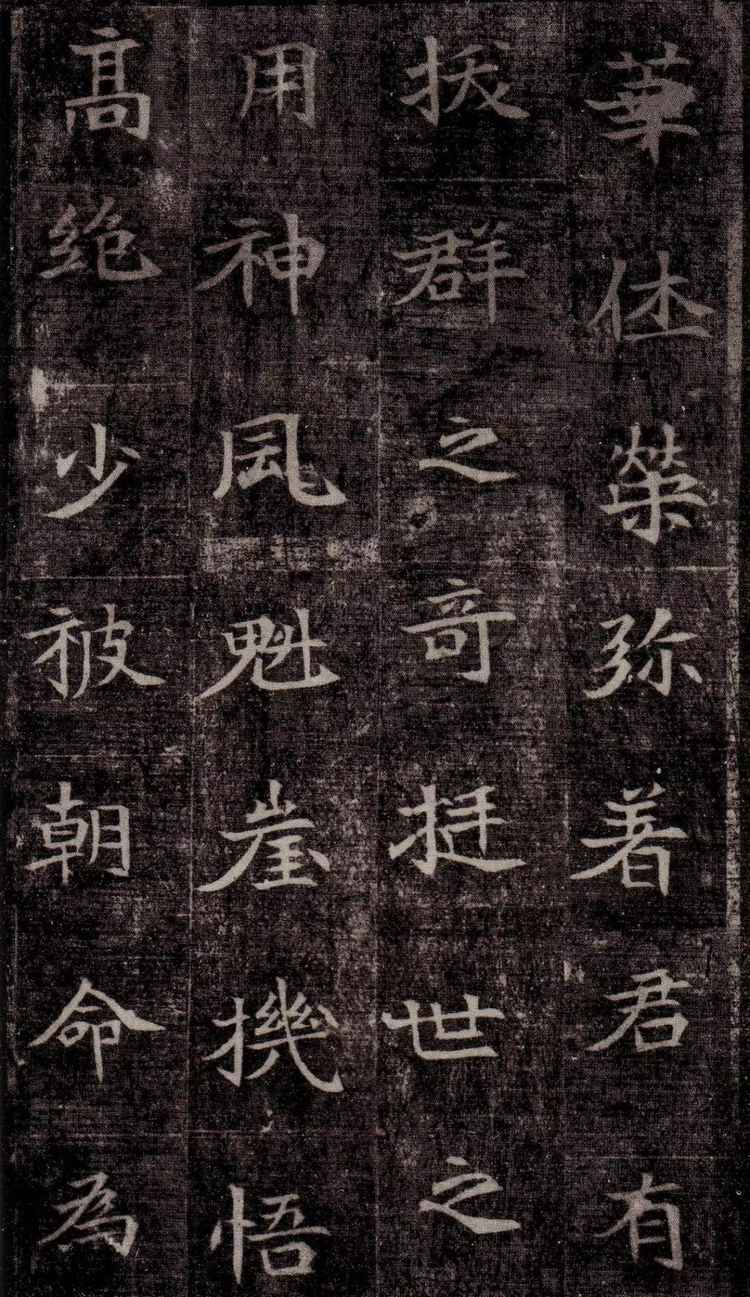 華榮弥著君有
拔群之奇挺世之
用神風魁崖機悟
高絶少被朝命為